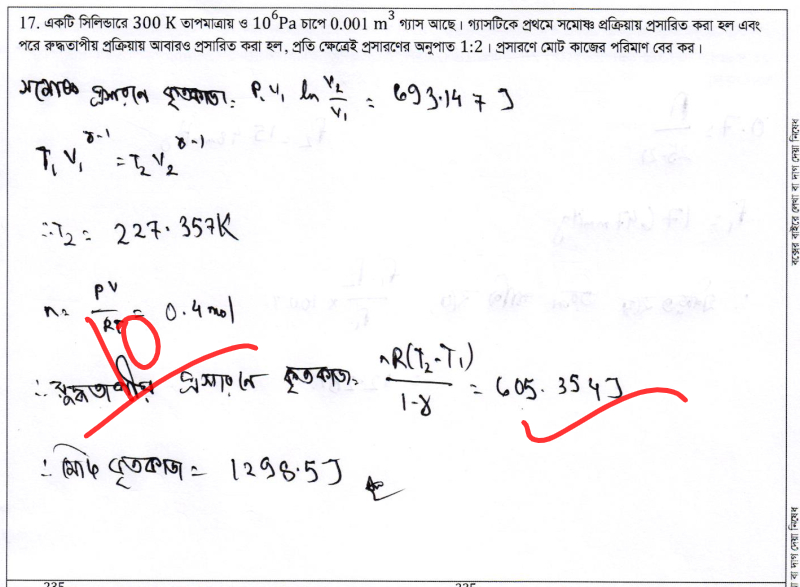 17. একটি সিলিন্ডারে 300 K তাপমাত্রায় ও 10⁶Pa চাপে 0.001 m³ গ্যাস আছে। গ্যাসটিকে প্রথমে সমোষ্ণ প্রক্রিয়ায় প্রসারিত করা হল এবং
পরে রুদ্ধতাপীয় প্রক্রিয়ায় আবারও প্রসারিত করা হল, প্রতি ক্ষেত্রেই প্রসারণের অনুপাত 1:2। প্রসারণে মোট কাজের পরিমাণ বের কর।
সমোষ্ণ প্রসারণে কৃতকাজ = P₁V₁ ln V₂/V₁ = 693.147 J
T₁V₁^(γ-1) = T₂V₂^(γ-1)
∴ T₂ = 227.357K
n = PV/RT = 0.4 mol
10
∴ রুদ্ধতাপীয় প্রসারণে কৃতকাজ = nR(T₂-T₁)/(1-γ) = 605.354J
∴ মোট কৃতকাজ = 1298.5J
বক্সের বাইরে লেখা বা দাগ দেয়া নিষেধ
বা দাগ দেয়া নিষেধ